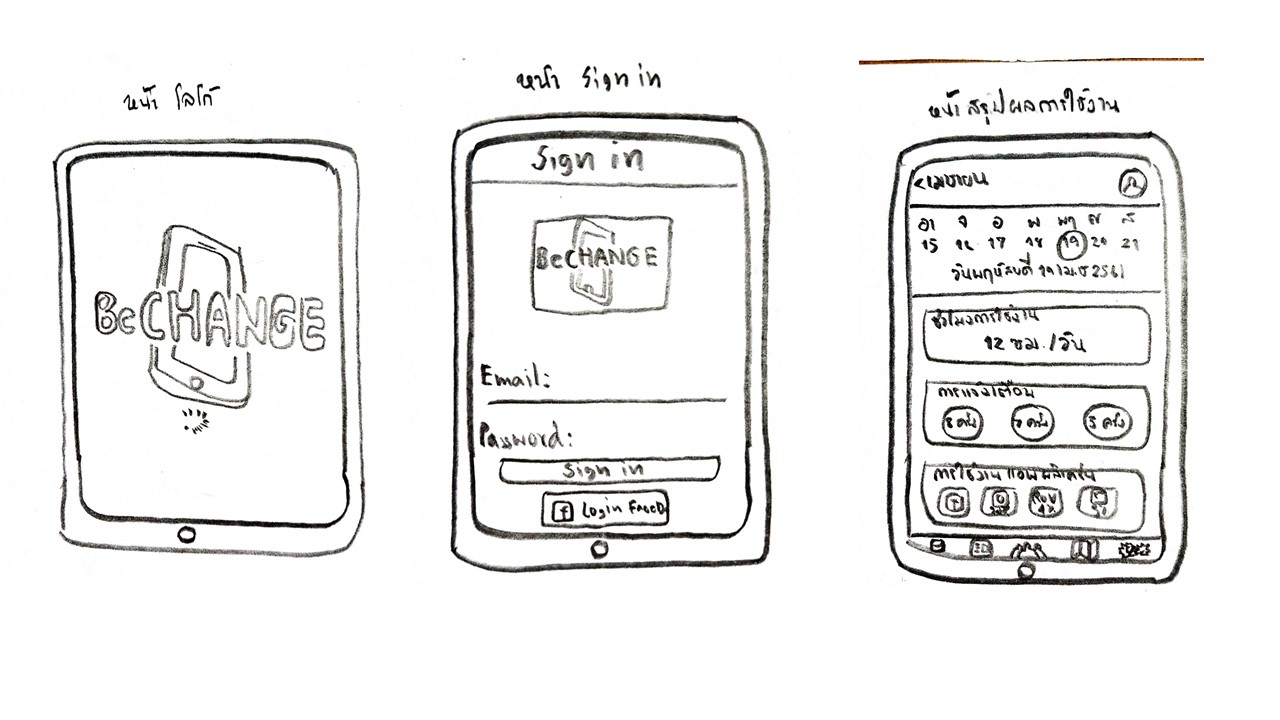 หน้า โลโก้
BeCHANGE
หน้า Sign in
Sign in
BeCHANGE
Email:
Password:
Sign in
f Login Faceb
หน้าสรุปผลการใช้งาน
<เมษายน
อา จ อ พ พฤ ศ ส
15 16 17 18 19 20 21
วันพฤหัสบดีที่ 19 เม.ย 2561
ชั่วโมงการใช้งาน
12 ชม. / วัน
การแจ้งเตือน
8 ครั้ง 7 ครั้ง 3 ครั้ง
การใช้งานแอพพลิเคชั่น